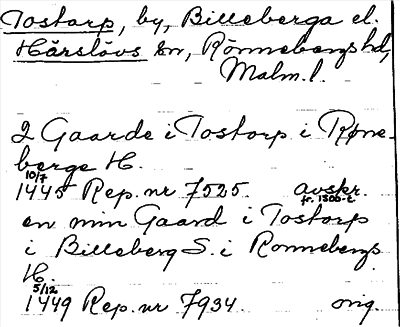 Tostarp, by, Billeberga el.
Härslövs sn, Rönnebergs hd,
Malm. l.
2 Gaarde i Tostorp i Røne-
berge H.
10/7
1445 Rep. nr 7525. avskr.
fr. 1500-t.
en min Gaard i Tostorp
i Billeberg S. i Ronnebergs
H.
5/12
1449 Rep. nr 7934 orig.